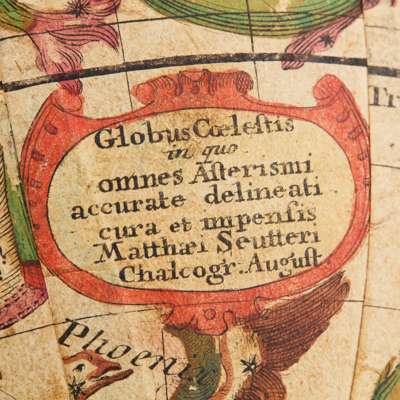 Globus Cœlestis
in quo
omnes Asterismi
accurate delineati
cura et impensis
Matthæi Seutteri
Chalcogr. August
Phoeni